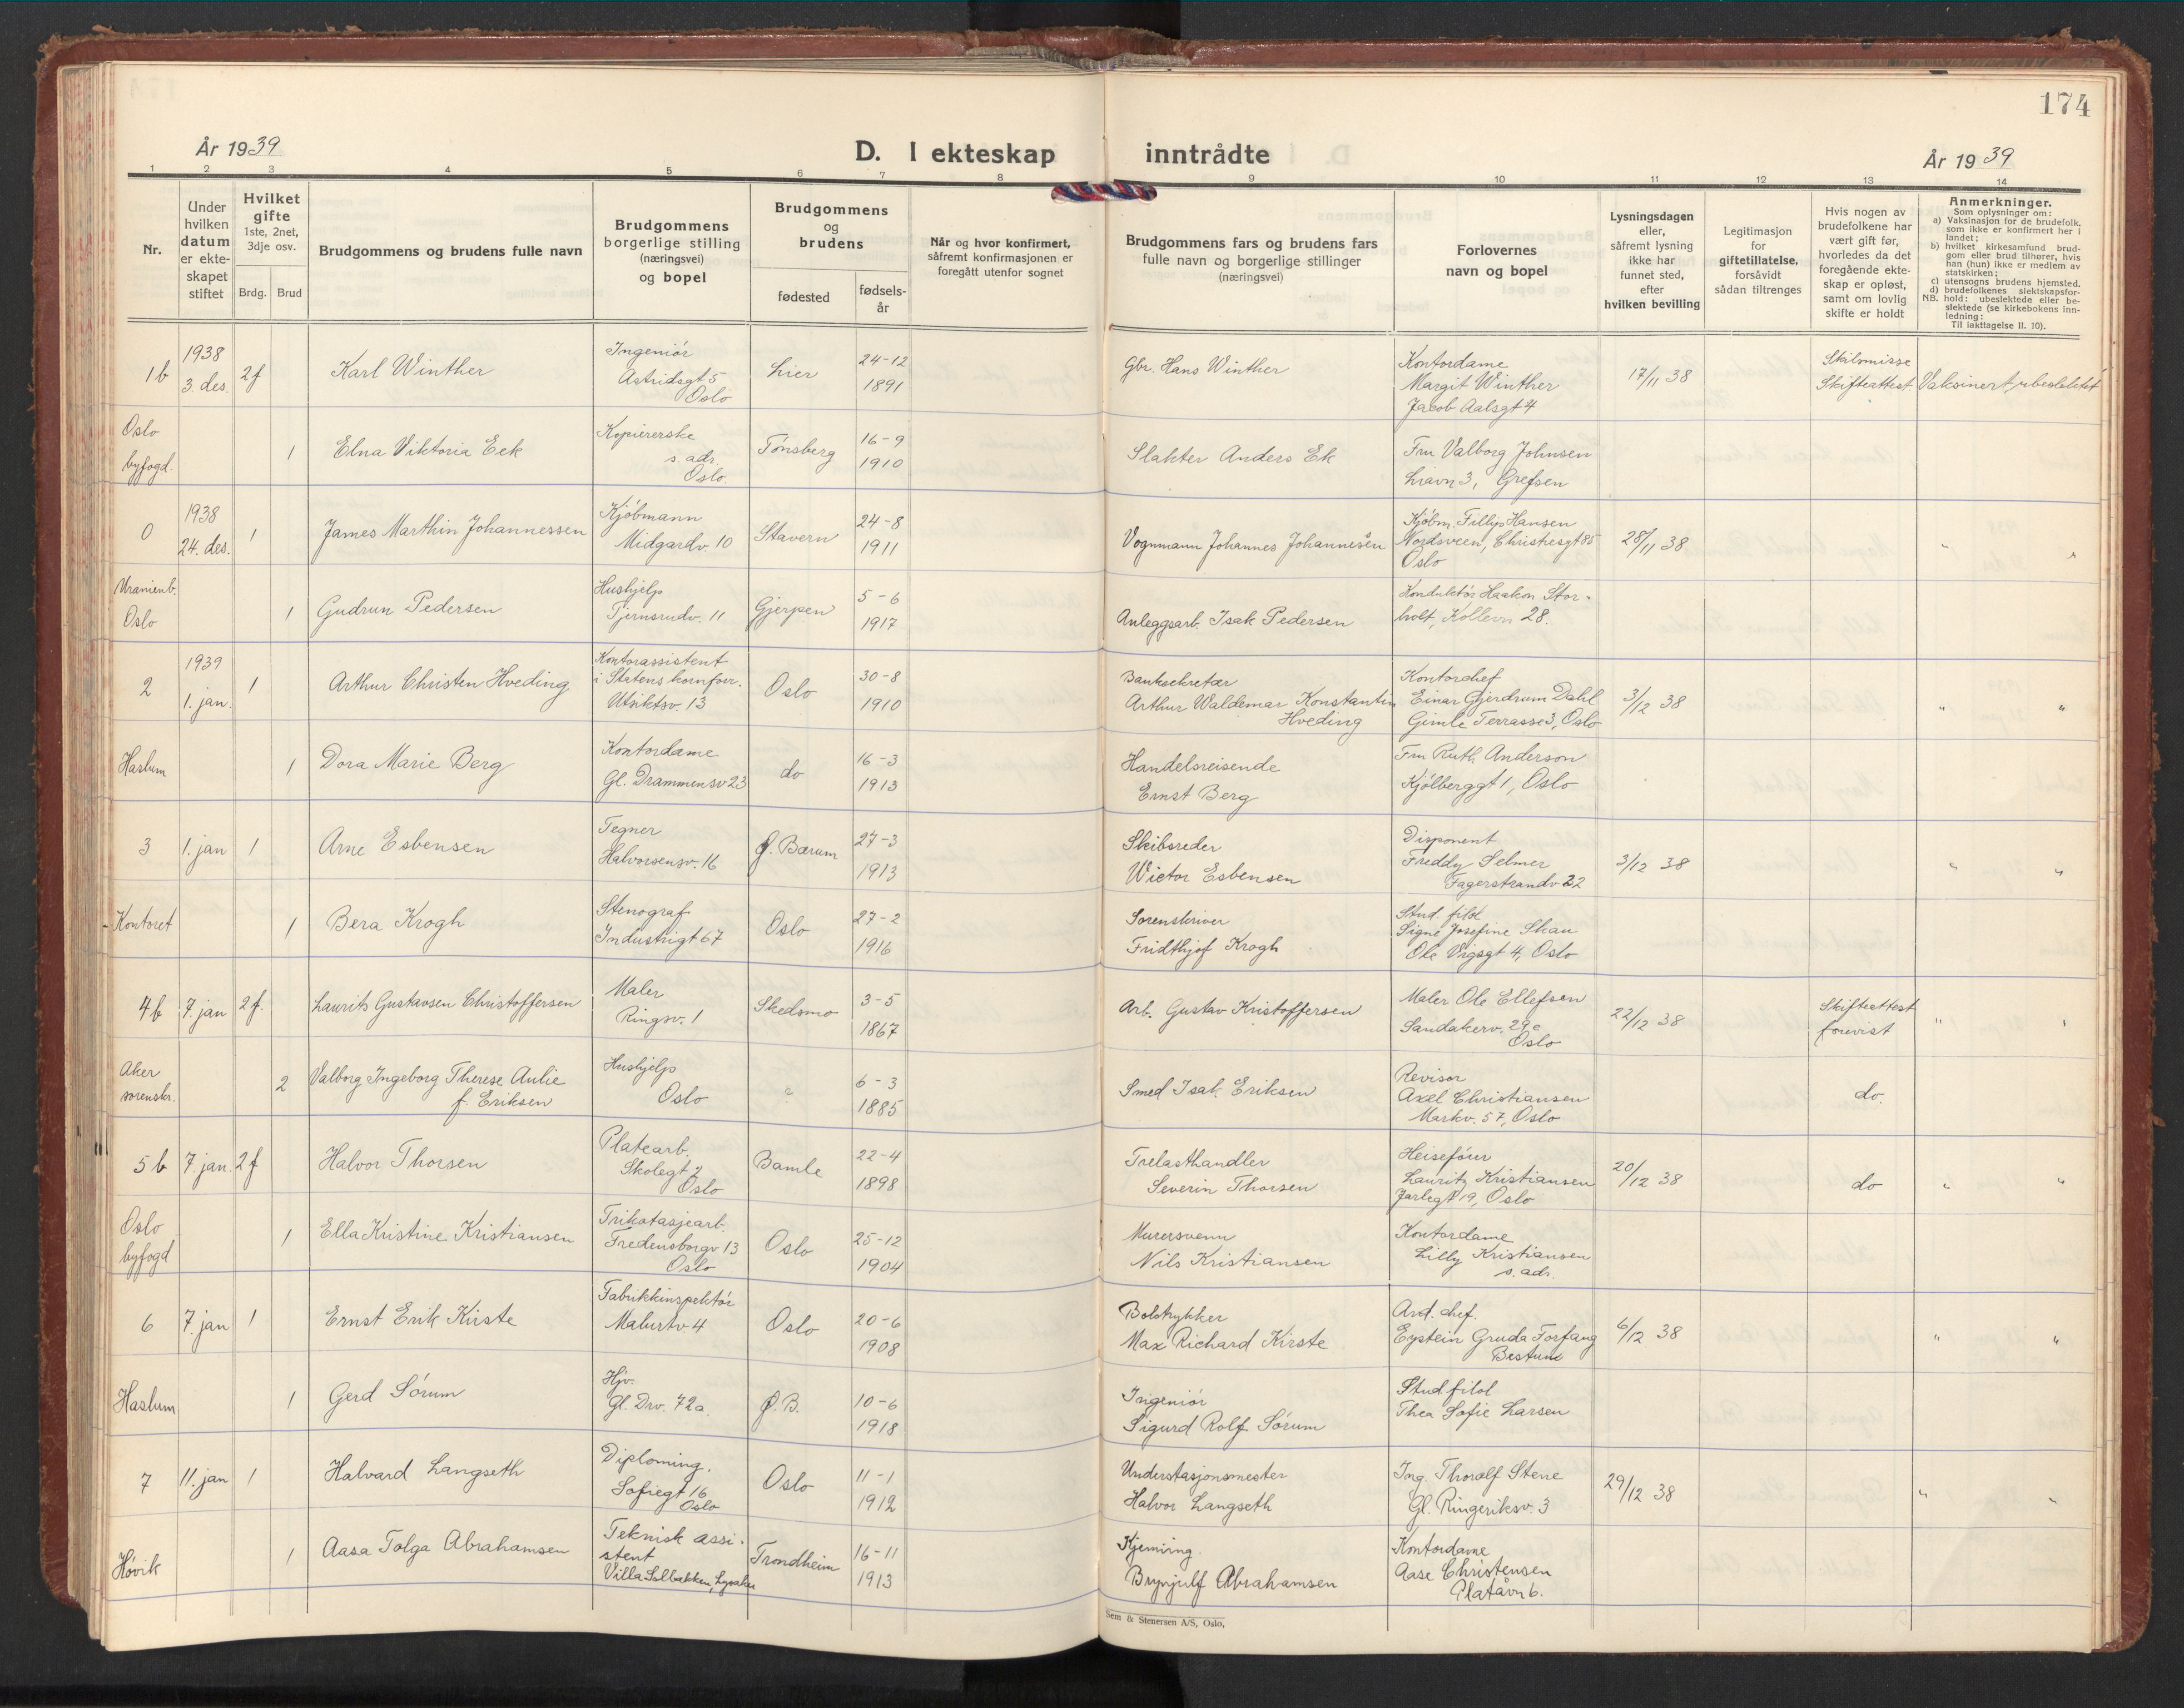 174
År 1939
D. I ekteskap inntrådte
År 1939
1 2 3 4 5 6 7 8 9 10 11 12 13 14
Nr.
Under hvilken datum er ekte-skapet stiftet
Hvilket gifte 1ste, 2net, 3dje osv.
Brdg. Brud
Brudgommens og brudens fulle navn
Brudgommens borgerlige stilling (næringsvei) og bopel
Brudgommens og brudens
fødested
fødsels-år
Når og hvor konfirmert, såfremt konfirmasjonen er foregått utenfor sognet
Brudgommens fars og brudens fars fulle navn og borgerlige stillinger (næringsvei)
Forlovernes navn og bopel
Lysningsdagen eller, såfremt lysning ikke har funnet sted, efter hvilken bevilling
Legitimasjon for giftetillatelse, forsåvidt sådan tiltrenges
Hvis nogen av brudefolkene har vært gift før, hvorledes da det foregående ekte-skap er opløst, samt om lovlig skifte er holdt
Anmerkninger.
Som oplysninger om:
a) Vaksinasjon for de brudefolk, som ikke er konfirmert her i landet;
b) hvilket kirkesamfund brud-gom eller brud tilhører, hvis han (hun) ikke er medlem av statskirken;
c) utensogns brudens hjemsted.
d) brudefolkenes slektskapsfor-hold: ubeslektede eller be-slektede (se kirkebokens inn-ledning:
NB. Til iakttagelse II. 10).
1b 1938 3 des. 2f Karl Winther Ingeniør Astridsgt 5 Oslo Lier 24-12 1891 Gbr. Hans Winther Kontordame Margit Winther Jacob Aalsgt 4 17/11 38 Skilsmisse Skifteattest Vaksinert, ubeslektet
Oslo byfogd. 1 Elna Viktoria Eek Kopiererske s. adr. Oslo. Tønsberg 16-9 1910 Slakter Anders Ek Fru Valborg Johnsen Liavn 3, Grefsen
0 1938 24. des. 1 James Marthin Johannessen Kjøbmann Midgardv. 10 Stavern 24-8 1911 Vognmann Johannes Johannesen Kjøbm. Fillip Hansen Nordsveen, Christiesgt 85 Oslo 28/11 38 " "
Uranienb. Oslo 1 Gudrun Pedersen Hushjelp Tjernsrudv. 11 Gjerpen 5-6 1917 Anleggsarb. Isak Pedersen Konduktør Haakon Stor-holt, Kollevn 28.
2 1939 1. jan. 1 Arthur Christen Hveding Kontorassistent i Statens kornforr. Utsiktsv. 13 Oslo 30-8 1910 Banksekretær Arthur Waldemar Konstantin Hveding Kontorchef Einar Gjerdrum Dahl Gimle Terrasse 3, Oslo 3/12 38 " "
Haslum 1 Dora Marie Berg Kontordame Gl. Drammensv 23 do 16-3 1913 Handelsreisende Ernst Berg Fru Ruth Anderson Kjølberggt 1, Oslo
3 1. jan 1 Arne Esbensen Tegner Halvorsensv. 16 Ø. Bærum 27-3 1913 Skibsreder Wictor Esbensen Disponent Freddy Selmer Fagerstrandv 22 3/12 38 " "
Kontoret 1 Bera Krogh Stenograf Industrigt 67 Oslo 27-2 1916 Sorenskriver Fridthjof Krogh Stud. filol Signe Josefine Skau Ole Vigsgt 4, Oslo
4b 7. jan 2f. Laurits Gustavsen Christoffersen Maler Ringsv. 1 Skedsmo 3-5 1867 Arb. Gustav Kristoffersen Maler Ole Ellefsen Sandakerv. 29c Oslo 22/12 38 Skifteattest forevist " "
Aker sorenskr. 2 Valborg Ingeborg Therese Aulie f. Eriksen Hushjelp Oslo " 6-3 1885 Smed Isak Eriksen Revisor Axel Christiansen Markv. 57, Oslo do.
5b 7. jan. 2f Halvor Thorsen Platearb. Skolegt 2 Oslo Bamle 22-4 1898 Trelasthandler Severin Thorsen Heisefører Lauritz Kristiansen Jarlegt 19, Oslo 20/12 38 do " "
Oslo byfogd 1 Ella Kristine Kristiansen Trikotasjearb. Fredensborgv 13 Oslo Oslo 25-12 1904 Murersvenn Nils Kristiansen Kontordame Lilly Kristiansen s. adr.
6 7. jan 1 Ernst Erik Kirste Fabrikkinspektør Malurtv 4 Oslo 20-6 1908 Boktrykker Max Richard Kirste Avd. chef. Eystein Gruda Torfang Bestum 6/12 38 " "
Haslum 1 Gerd Sørum Hjv. Gl. Drv. 72a. Ø.B. 10-6 1918 Ingeniør Sigurd Rolf Sørum Stud filol Thea Sofie Larsen
7 11. jan 1 Halvard Langseth Diploming. Sofiegt 16 Oslo Oslo 11-1 1912 Understasjonsmester Halvor Langseth Ing. Thoralf Stene Gl. Ringeriksv. 3 29/12 38 " "
Høvik 1 Aasa Tolga Abrahamsen Teknisk assi-stent Villa Solbakken, Lysaker Trondheim 16-11 1913 Kjeming. Brynjulf Abrahamsen Kontordame Aase Christensen Platåvn 6.
Sem & Stenersen A/S, Oslo,